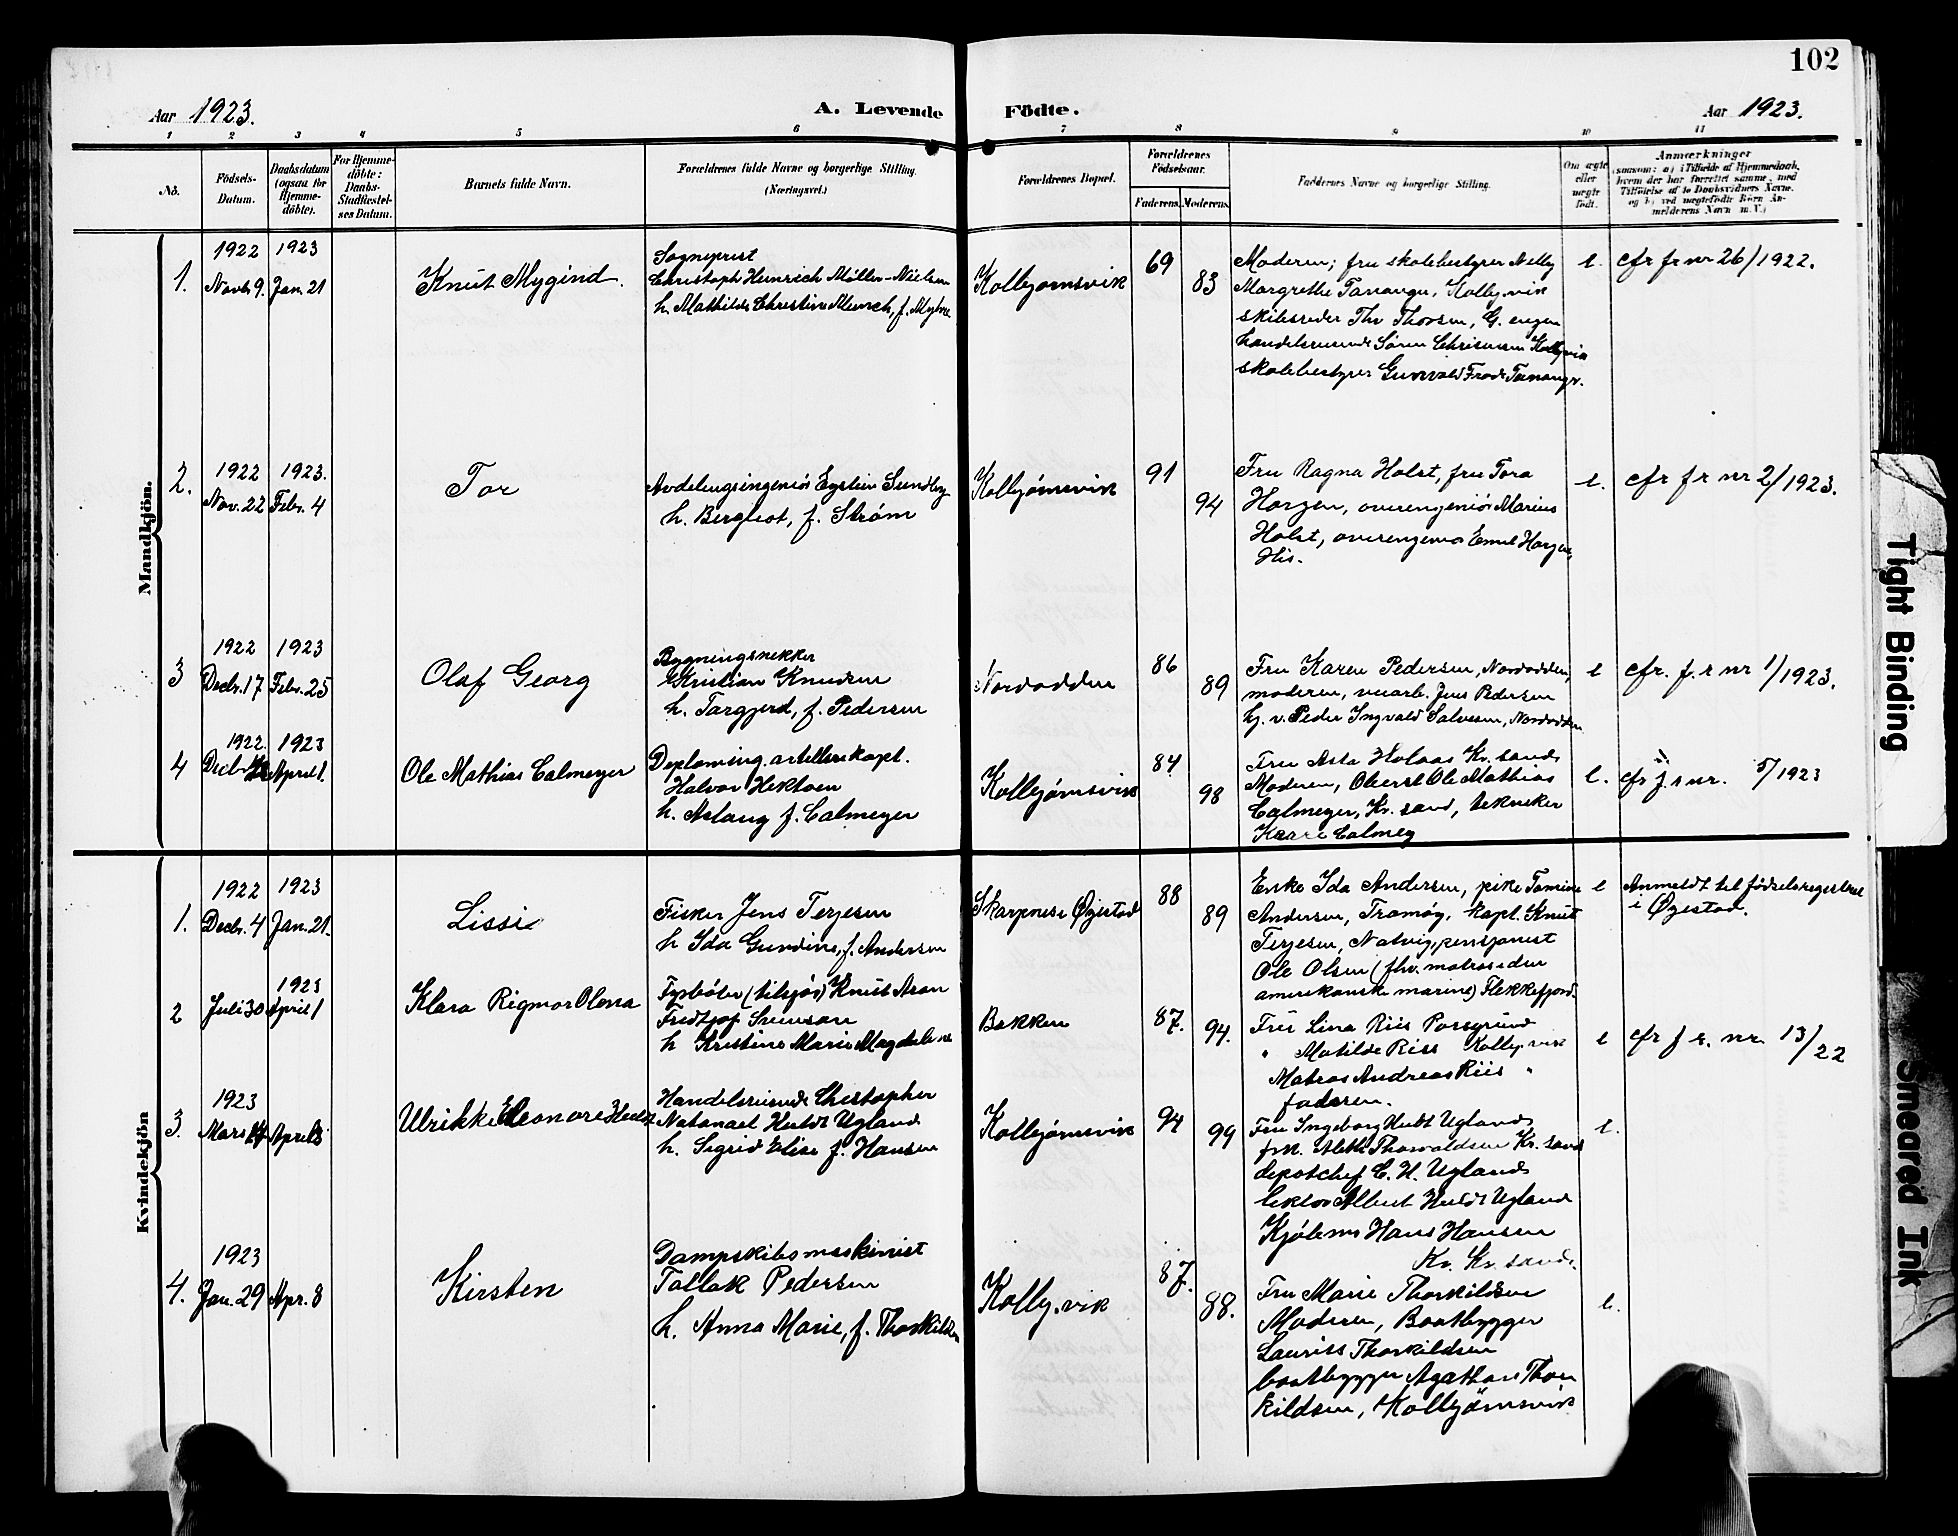 102
Aar 1923.
A. Levende Födte.
Aar 1923.
1 2 3 4 5 6 7 8 9 10 11
No.
Födsels-
Datum.
Daabsdatum
(ogsaa for
Hjemme-
döbte).
For Hjemme-
döbte:
Daabs-
Stadfæstel-
ses Datum.
Barnets fulde Navn.
Forældrenes fulde Navne og borgerlige Stilling.
(Næringsvei.)
Forældrenes Bopæl.
Forældrenes
Födselsaar.
Faderens. Moderens.
Faddernes Navne og borgerlige Stilling.
Om ægte
eller
uægte
födt.
Anmærkninger
saasom: a) i Tilfælde af Hjemmedaab,
hvem der har forrettet samme, med
Tilföielse af to Daabsvidners Navne.
og b) ved uægtefödte Börn An-
melderens Navn m. V.)
Mandkjön.
1.
1922
Novb 9.
1923
Jan. 21
Knut Mygind.
Sogneprest
Christoph Heinrich Møller-Nielsen
h. Mathilde Christine Munch, f.
Kolbjørnsvik
69
83
Moderen; fru skolebestyrer Nelly
Margrethe Tananger, Kolbj.vik
skibsreder Thv Thorsen, G. engen
handelsreisende Søren Kolbj.vik
skolebestyrer Gunvald Frode Tananger.
e.
cfr fr nr 26/1922.
2.
1922
Nov. 22
1923.
Febr. 4
Tor
Avdelingsingeniør Eystein Sundby
h. Bergliot, f. Strøm
Kolbjørnsvik
91
94
Fru Ragna Holst, fru Tora
Horgen, overingeniør Marius
Holst, overingeniør Emil Horgen,
His.
e.
cfr f r nr 2/1923.
3
1922
Decbr. 17
1923
Febr. 25
Olaf Georg
Bygningssnekker
Kristian Knudsen
h. Targjerd, f. Pedersen
Nordodden
86
89
Fru Karen Pedersen, Nordodden,
moderen, verarb. Jens Pedersen
hj. v. Peder Ingvald Salvesen, Nordodden
e
cfr. f. r nr 1/1923.
4
1922.
Decbr
1923
April 1.
Ole Mathias Calmeyer
Diploming. artillerikapt.
Halvor Hektoen
h. Aslaug f. Calmeyer
Kolbjørnsvik
84
98
Fru Asta Holaas Kr. sand
Moderen, Oberst Ole Mathias
Calmeyer, Kr. sand, tekniker
Kaare Calmey
e.
cfr f. r nr. 5/1923
Kvindekjön
1.
1922
Decbr. 4
1923
Jan. 21.
Lissi
Fisker Jens Terjesen
h Ida Gundine, f. Andersen
Skarpnes i Øiestad
88
89
Enke Ida Andersen, pike Tomine
Andersen, Tromøy, kapt. Knut
Terjesen, Natvig, pensjonist
Ole Olsen (fhv. matros i den
amerikanske marine) Flekkefjord.
e
Anmeldt til fødselsregistret
i Øiestad.
2
Juli 30
1923
April 1
Klara Rigmor Olena
Fyrbøter (tilsjøs) Knut Aron
Fredtjof Svensson
h Kristine Marie Magdalene
Bakken
87.
94.
Fru Lina Riis Porsgrund
" Matilde Riis Kolbj.vik
Matros Andreas Riis "
faderen.
e
cfr f r. nr. 13/22
3.
1923
Mars
April 8
Ulrikke Eleonore
Handelsreisende Christopher
Natanael Huldt Ugland
h. Sigrid Elise f. Hansen
Kolbjørnsvik
94
99
Fru Ingeborg Huldt Ugland
frk. Aleth Thorvaldsen Kr. sand
depotchef C. H. Ugland
lektor Albert Huldt Ugland
Kjølem. Hans Hansen
Kr. Kr. sand.
e.
4.
1923
Jan. 29
Apr. 8
Kirsten
Dampskibsmaskinist
Tallak Pedersen
h. Anna Marie, f. Thorkildsen
Kolbj.vik
87.
88.
Fru Marie Thorkildsen
Moderen, Baatbygger
Laurits Thorkildsen
baatbygger Agathon Thor
kildsen, Kolbjørnsvik
e.
Tight Binding
Smeared Ink